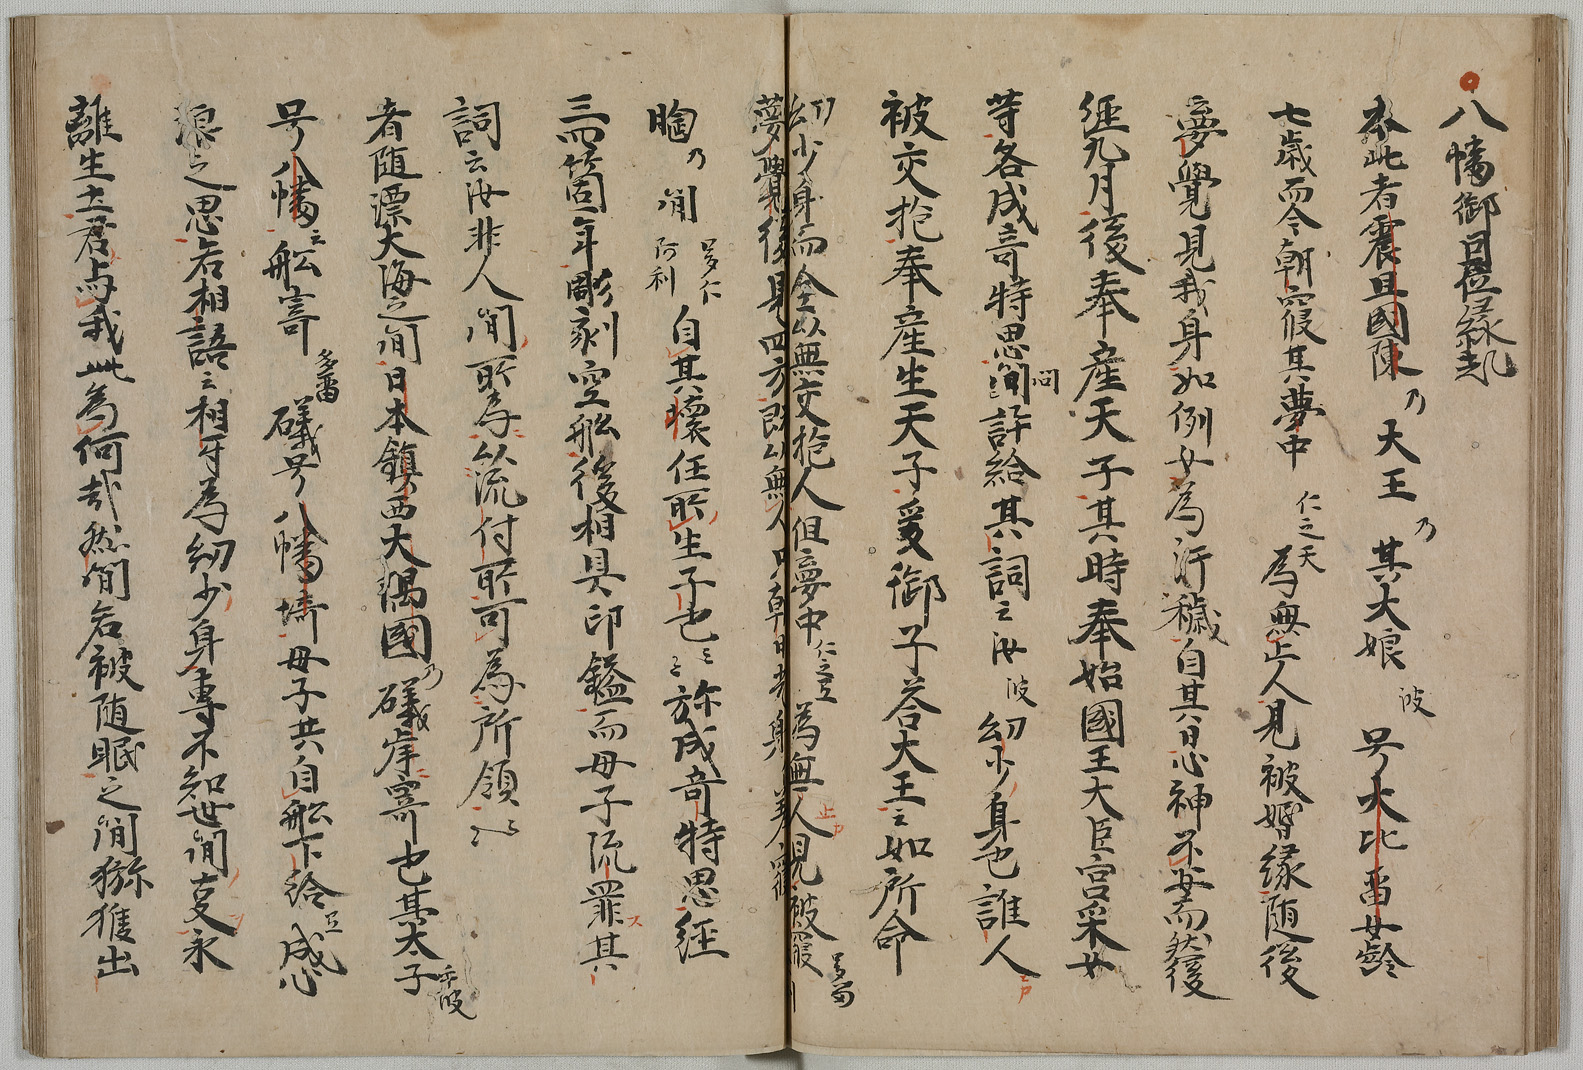 八幡御因位縁起
本此者震旦國陳乃大王乃其大娘波号大比留女齢
七歳而今朝寢其夢中仁之天為無止人見被婚縁随後
夢覺見我身如例女為汙穢自其日心神不安而然後
經九月後奉産天子其時奉始國王大臣宮采女
等各成奇特思間問許給其詞云汝波幼少身也誰人
被交抱奉産生天子爰御子答大王云如所命
幼少身而全以無交抱人但夢中仁之天為無人見被寢多留
夢覺後見四方既以無人
胸乃間多仁阿利自其懷任所生子也云云弥成奇特思經
三四箇年彫剋空船後相具印鎰而母子流罪其
詞云汝非人間所為以流付所可為所領云云
者随漂大海之間日本鎮西大隅國乃礒岸寄也其太子乎波
号八幡之船寄多留礒号八幡埼母子共自船下給豆成心
浪之思右相語云相牙為幼少身專不知世間支永
離生土君与我此為何哉然間若被随眠之間猕猴出